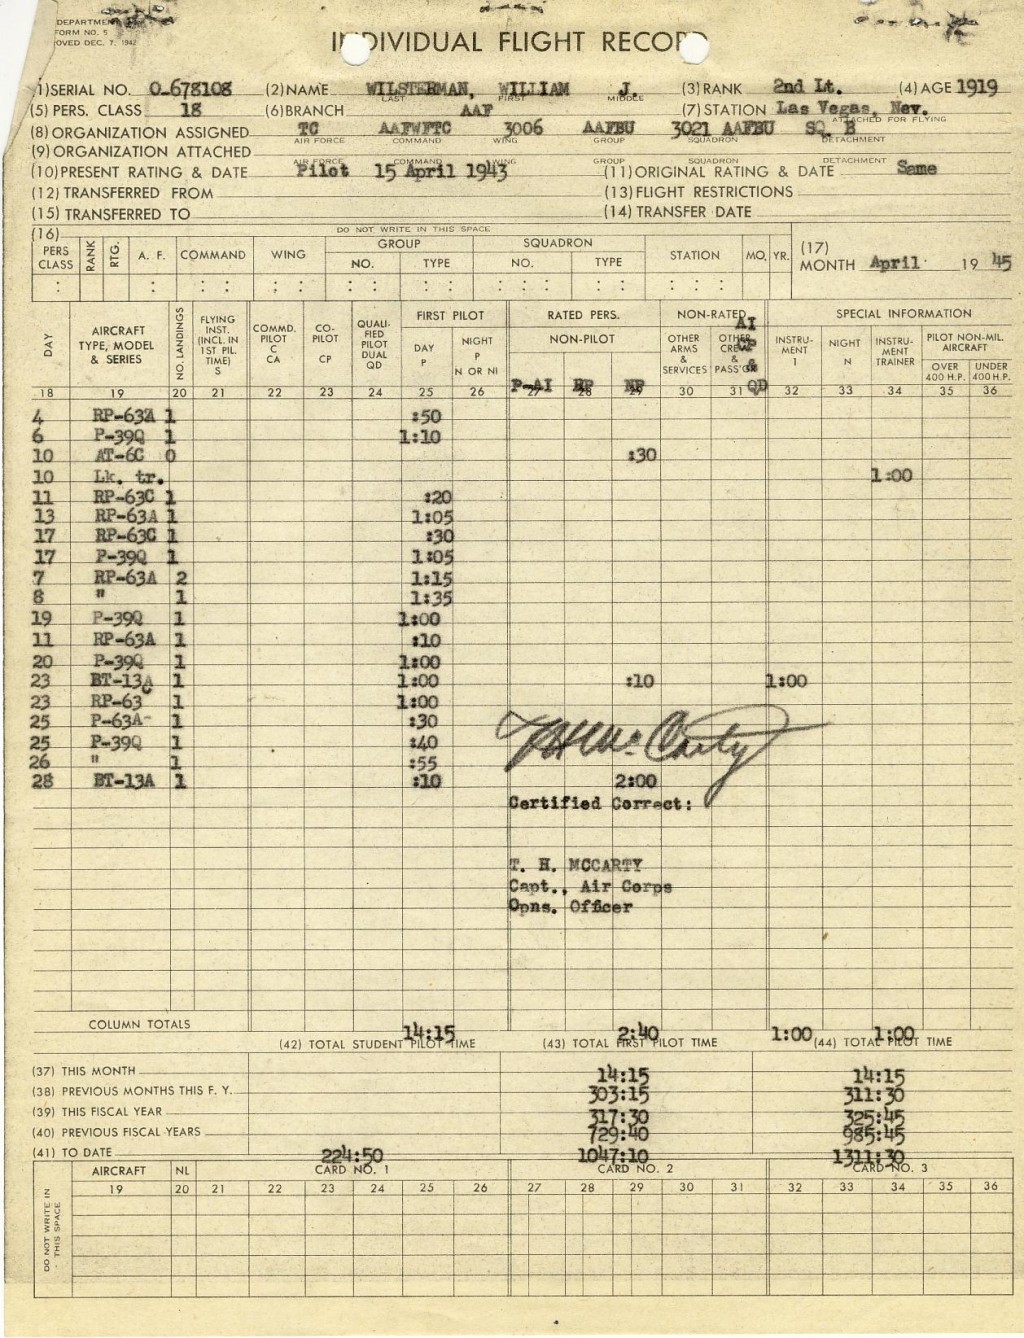 DEPARTMENT
FORM NO. 5
OVED DEC. 7, 1942
INDIVIDUAL FLIGHT RECORD
(1) SERIAL NO. O-678108 (2) NAME WILSTERMAN, WILLIAM J. (3) RANK 2nd Lt. (4) AGE 1919
LAST FIRST MIDDLE
(5) PERS. CLASS 18 (6) BRANCH AAF (7) STATION Las Vegas, Nev.
ATTACHED FOR FLYING
(8) ORGANIZATION ASSIGNED TC AAFWFTC 3006 AAFBU 3021 AAFBU SQ. B
AIR FORCE COMMAND WING GROUP SQUADRON DETACHMENT
(9) ORGANIZATION ATTACHED
AIR FORCE COMMAND WING GROUP SQUADRON DETACHMENT
(10) PRESENT RATING & DATE Pilot 15 April 1943 (11) ORIGINAL RATING & DATE Same
(12) TRANSFERRED FROM (13) FLIGHT RESTRICTIONS
(15) TRANSFERRED TO (14) TRANSFER DATE
(16) DO NOT WRITE IN THIS SPACE
PERS CLASS RANK RTG. A. F. COMMAND WING GROUP NO. TYPE SQUADRON NO. TYPE STATION MO. YR. (17) MONTH April 19 45
DAY AIRCRAFT TYPE, MODEL & SERIES NO. LANDINGS FLYING INST. (INCL. IN 1ST PIL. TIME) S COMMD. PILOT C CA CO-PILOT CP QUALI-FIED PILOT DUAL QD FIRST PILOT DAY P NIGHT P N OR NI RATED PERS. NON-PILOT NON-RATED OTHER ARMS & SERVICES OTHER CREW & PASS'GR SPECIAL INFORMATION INSTRU-MENT I NIGHT N INSTRU-MENT TRAINER PILOT NON-MIL. AIRCRAFT OVER 400 H.P. UNDER 400 H.P.
P-AI NP AI & QD
18 19 20 21 22 23 24 25 26 27 28 29 30 31 32 33 34 35 36
4 RP-63A 1 :50
6 P-39Q 1 1:10
10 AT-6C 0 :30
10 Lk. tr. 1:00
11 RP-63C 1 :20
13 RP-63A 1 1:05
17 RP-63C 1 :30
17 P-39Q 1 1:05
7 RP-63A 2 1:15
8 " 1 1:35
19 P-39Q 1 1:00
11 RP-63A 1 :10
20 P-39Q 1 1:00
23 BT-13A 1 1:00 :10 1:00
23 RP-63C 1 1:00
25 P-63A 1 :30
25 P-39Q 1 :40
26 " 1 :55
28 BT-13A 1 :10 2:00
T H McCarty
Certified Correct:
T. H. MCCARTY
Capt., Air Corps
Opns. Officer
COLUMN TOTALS 14:15 2:40 1:00 1:00
(42) TOTAL STUDENT PILOT TIME (43) TOTAL FIRST PILOT TIME (44) TOTAL PILOT TIME
(37) THIS MONTH 14:15 14:15
(38) PREVIOUS MONTHS THIS F. Y. 303:15 311:30
(39) THIS FISCAL YEAR 317:30 325:45
(40) PREVIOUS FISCAL YEARS 729:40 985:45
(41) TO DATE 224:50 1047:10 1311:30
AIRCRAFT NL CARD NO. 1 CARD NO. 2 CARD NO. 3
19 20 21 22 23 24 25 26 27 28 29 30 31 32 33 34 35 36
DO NOT WRITE IN THIS SPACE